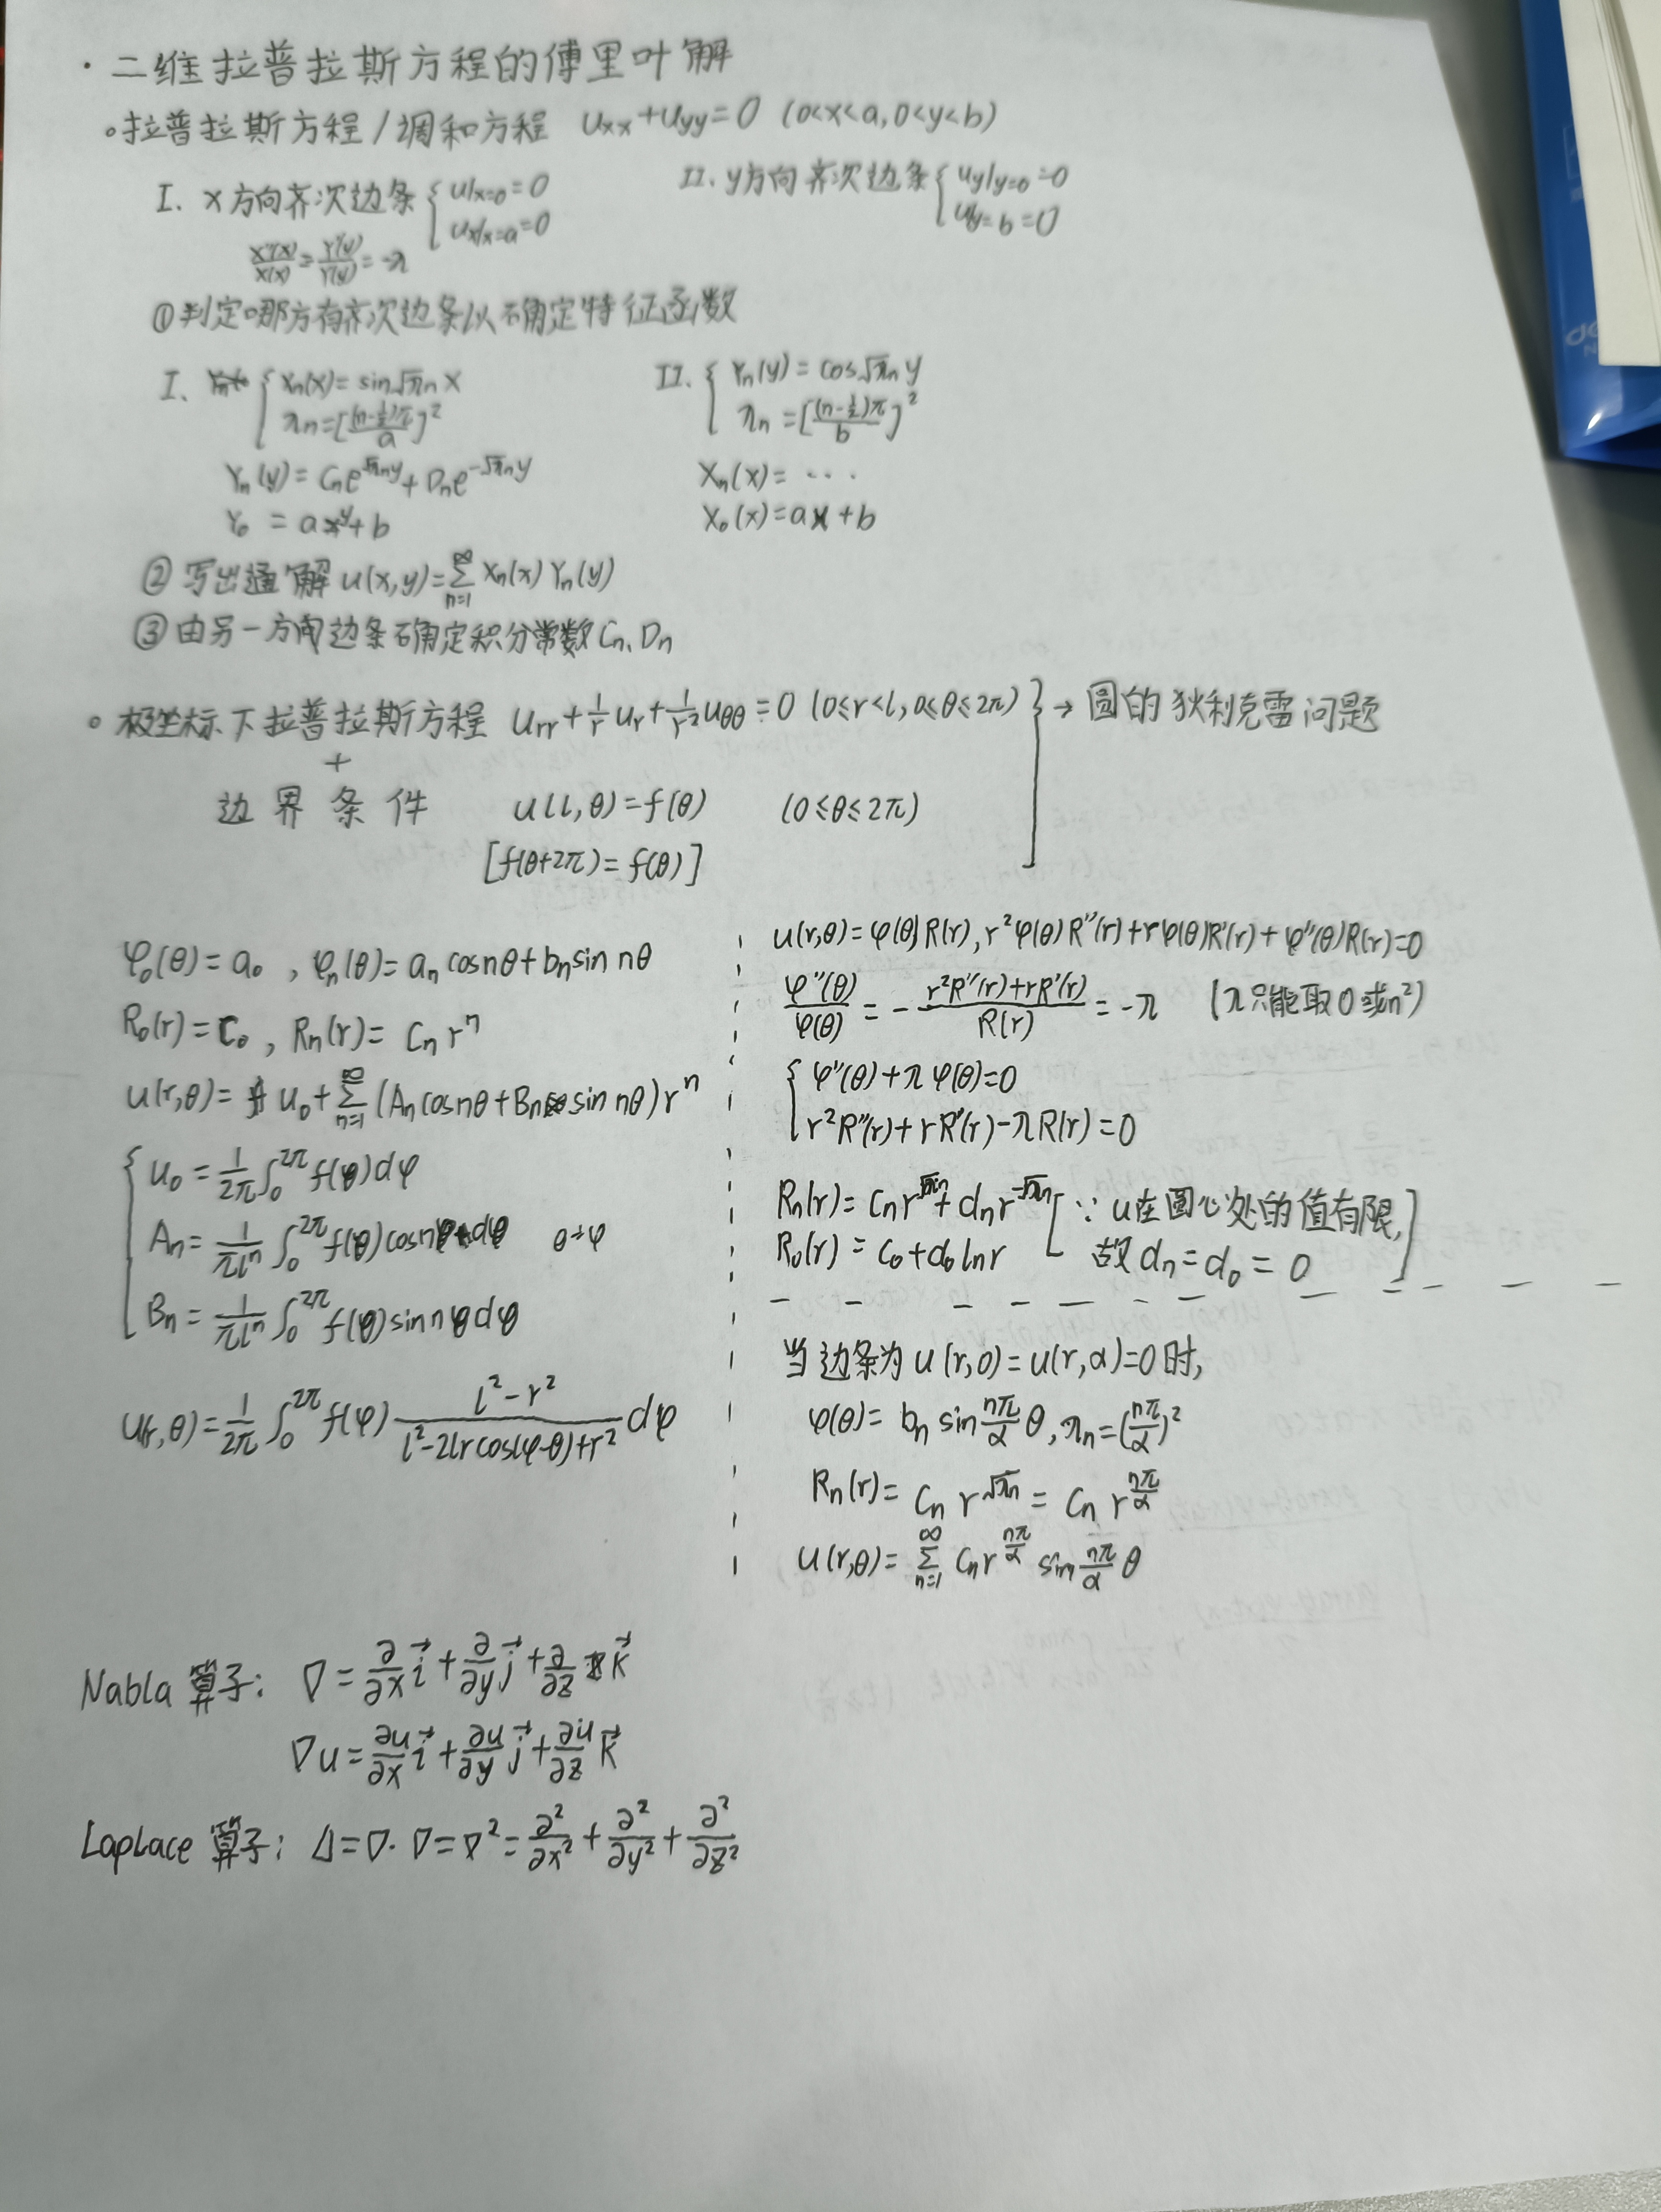 · 二维拉普拉斯方程的傅里叶解
∘拉普拉斯方程/调和方程 uxx+uyy=0 (0<x<a, 0<y<b)
I. x方向齐次边条 { u|x=0=0
ux|x=a=0
X''(x)/X(x)=Y''(y)/Y(y)=-λ
II. y方向齐次边条 { uy|y=0=0
u|y=b=0
①判定哪方有齐次边条以确定特征函数
I. { Xn(x)=sin√λn x
λn=[(n-½)π/a]²
Yn(y)=Cne^√λny+Dne^-√λny
Y0=ay+b
II. { Yn(y)=cos√λn y
λn=[(n-½)π/b]²
Xn(x)=···
X0(x)=ax+b
②写出通解 u(x,y)=∑n=1^∞ Xn(x)Yn(y)
③由另一方向边条确定积分常数Cn、Dn
∘ 极坐标下拉普拉斯方程 urr+1/r ur+1/r² uθθ=0 (0≤r<l, 0≤θ≤2π) } → 圆的狄利克雷问题
+
边界条件 u(l,θ)=f(θ) (0≤θ≤2π)
[f(θ+2π)=f(θ)]
φ0(θ)=a0, φn(θ)=an cosnθ+bn sin nθ
R0(r)=C0, Rn(r)=Cn r^n
u(r,θ)=u0+∑n=1^∞(An cosnθ+Bn sin nθ)r^n
{ u0=1/2π ∫0^2π f(φ)dφ
An=1/πl^n ∫0^2π f(φ)cosnφdφ θ→φ
Bn=1/πl^n ∫0^2π f(φ)sin nφdφ
u(r,θ)=1/2π ∫0^2π f(φ) (l²-r²)/(l²-2lrcos(φ-θ)+r²) dφ
u(r,θ)=φ(θ)R(r), r²φ(θ)R''(r)+rφ(θ)R'(r)+φ''(θ)R(r)=0
φ''(θ)/φ(θ)=-(r²R''(r)+rR'(r))/R(r)=-λ (λ只能取0或n²)
{ φ''(θ)+λφ(θ)=0
r²R''(r)+rR'(r)-λR(r)=0
Rn(r)=Cnr^√λn+dnr^-√λn [∵u在圆心处的值有限,
R0(r)=C0+d0lnr 故dn=d0=0]
当边条为u(r,0)=u(r,α)=0时,
φ(θ)=bn sin nπ/α θ, λn=(nπ/α)²
Rn(r)=Cn r^√λn=Cn r^nπ/α
u(r,θ)=∑n=1^∞ Cnr^nπ/α sin nπ/α θ
Nabla 算子: ∇=∂/∂x i⃗+∂/∂y j⃗+∂/∂z k⃗
∇u=∂u/∂x i⃗+∂u/∂y j⃗+∂u/∂z k⃗
Laplace 算子: Δ=∇·∇=∇²=∂²/∂x²+∂²/∂y²+∂²/∂z²